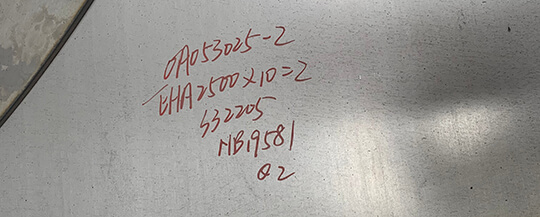 0A053025-2
EHA2500×10=2
S32205
NB19581
Q2